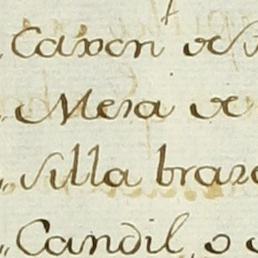 Caxon de
Mesa de
silla braze
Candil, o